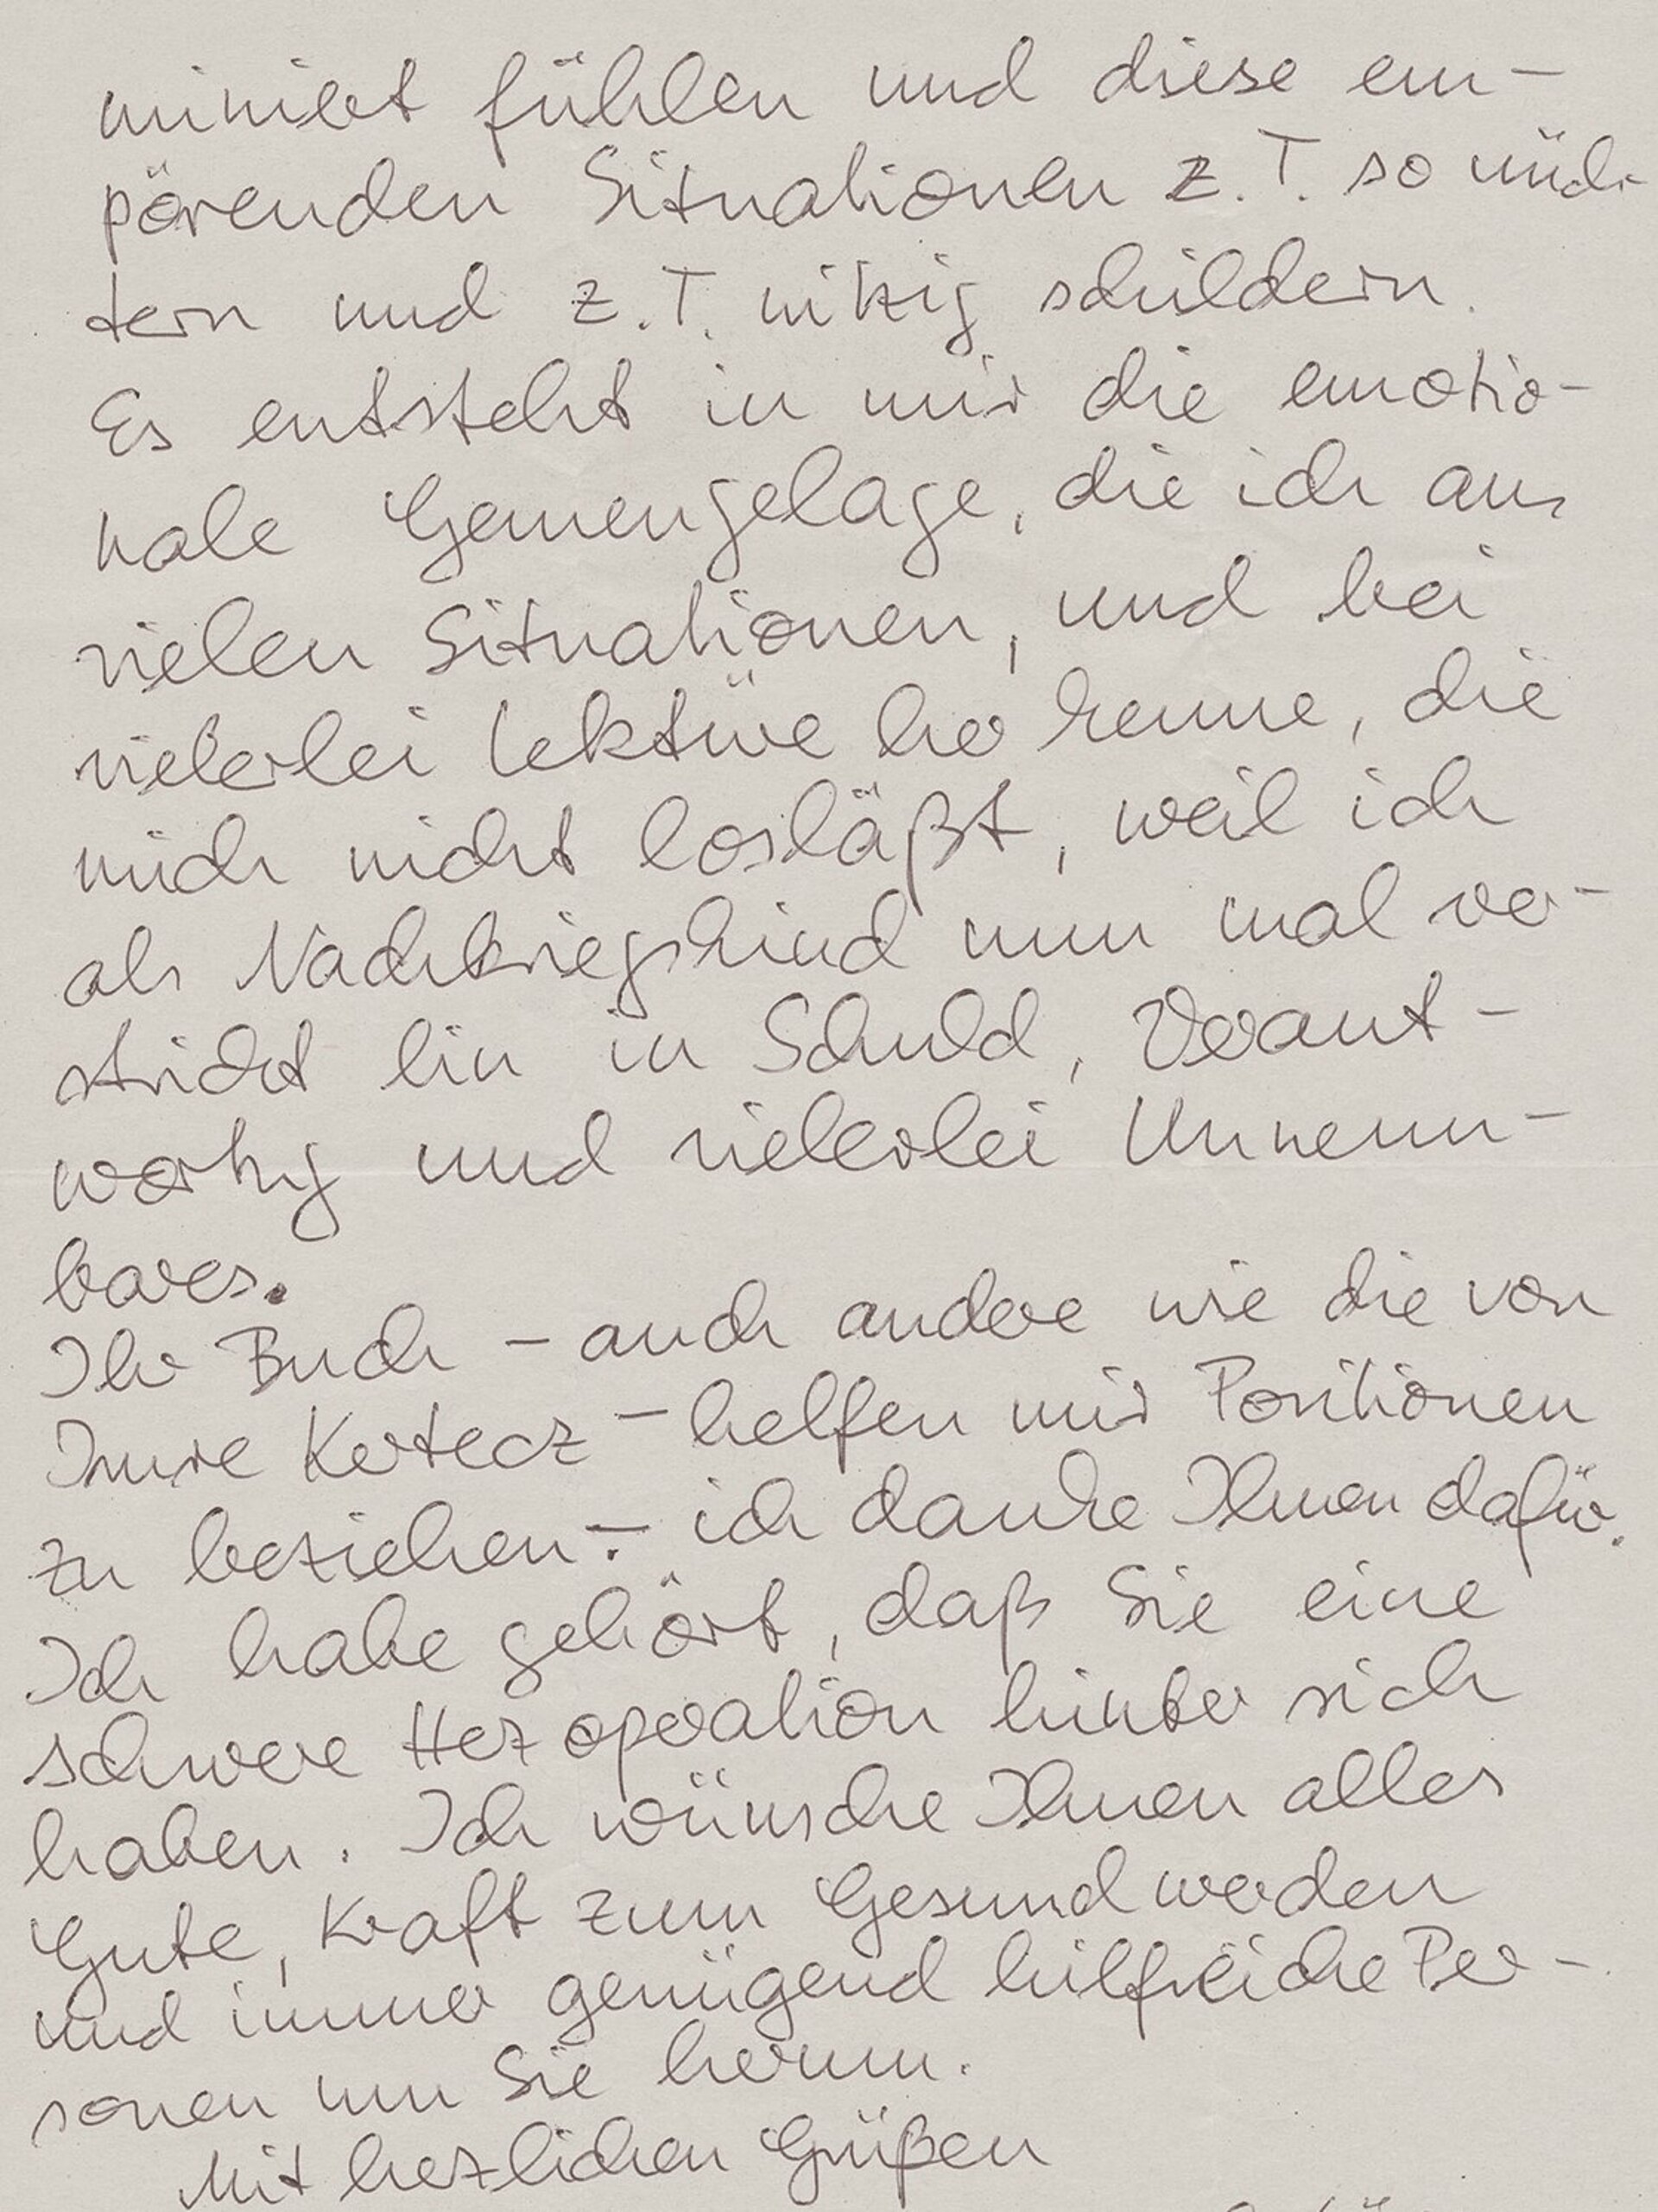 miniert fühlen und diese em-
pörenden Situationen z.T. so nüch-
tern und z.T. witzig schildern.
Es entsteht in mir die emotio-
nale Gemengelage, die ich aus
vielen Situationen, und bei
vielerlei Lektüre her kenne, die
mich nicht losläßt, weil ich
als Nachkriegskind nun mal ver-
strickt bin in Schuld, Verant-
wortung und vielerlei Unnenn-
bares.
Ihr Buch - auch andere wie die von
Imre Kertecz - helfen mir Positionen
zu beziehen. - ich danke Ihnen dafür.
Ich habe gehört, daß Sie eine
schwere Herzoperation hinter sich
haben. Ich wünsche Ihnen alles
Gute, Kraft zum Gesundwerden
und immer genügend hilfreiche Per-
sonen um Sie herum.
Mit herzlichen Grüßen